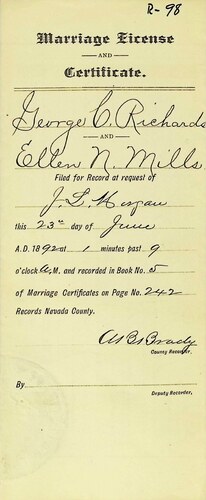 R-98
Marriage License
AND
Certificate.
George C. Richards
AND
Ellen N. Mills
Filed for Record at request of
J. L. Morgan
this 23rd day of June
A.D. 1892 at 1 minutes past 9
o'clock A.M. and recorded in Book No. 5
of Marriage Certificates on Page No. 242
Records Nevada County.
A B Brady
County Recorder.
By
Deputy Recorder,